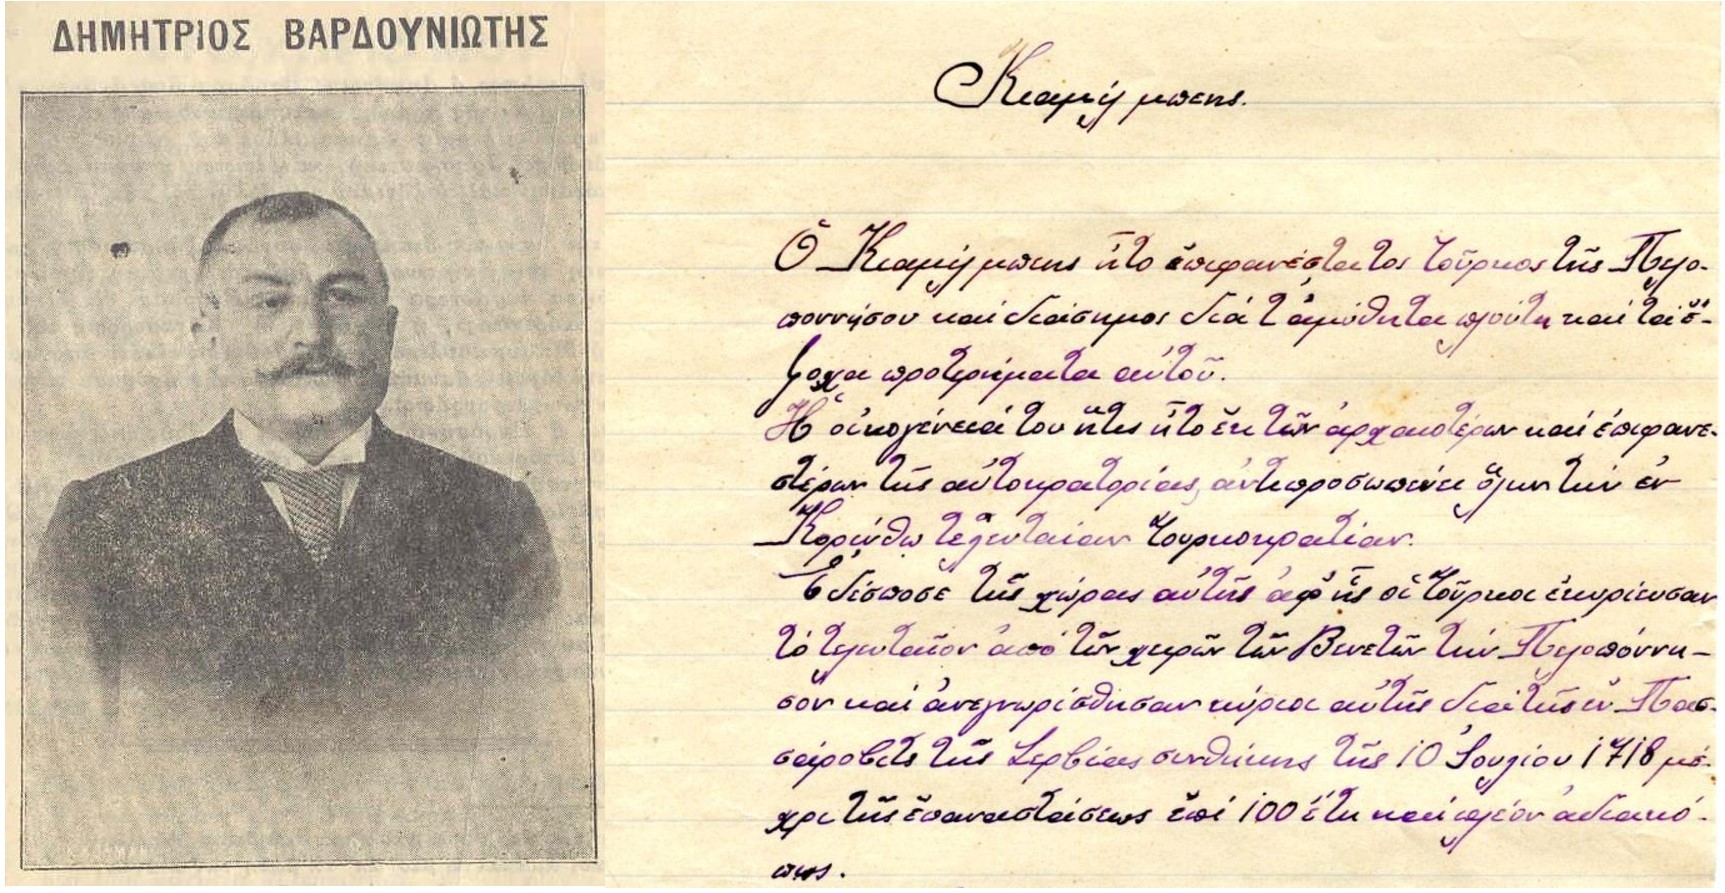 ΔΗΜΗΤΡΙΟΣ ΒΑΡΔΟΥΝΙΩΤΗΣ
Κιαμήλ μπεης.
Ὁ Κιαμήλ μπεης ἦτο ἐπιφανέστατος Τοῦρκος τῆς Πελο-
ποννήσου καί διάσημος διά τ' ἀμύθητα πλούτη καί τά ἔ-
ξοχα προτερήματα αὐτοῦ.
Ἡ οἰκογένειά του ἥτις ἦτο ἐκ τῶν ἀρχαιοτέρων καί ἐπιφανε-
στέρων τῆς αὐτοκρατορίας, ἀντιπροσωπεύει ὅλην τήν ἐν
Κορίνθω τελευταίαν Τουρκοκρατίαν.
Ἐδέσποσε τῆς χώρας αὐτῆς ἀφ' ἧς οἱ Τοῦρκοι ἐκυρίευσαν
τό τελευταῖον ἀπό τῶν χειρῶν τῶν Βενετῶν τήν Πελοπόννη-
σον καί ἀνεγνωρίσθησαν κύριοι αὐτῆς διά τῆς ἐν Πασ-
σάροβιτς τῆς Σερβίας συνθήκης τῆς 10 Ἰουλίου 1718 μέ-
χρι τῆς ἐπαναστάσεως ἐπί 100 ἔτη καί πλέον ἀδιακό-
πως.